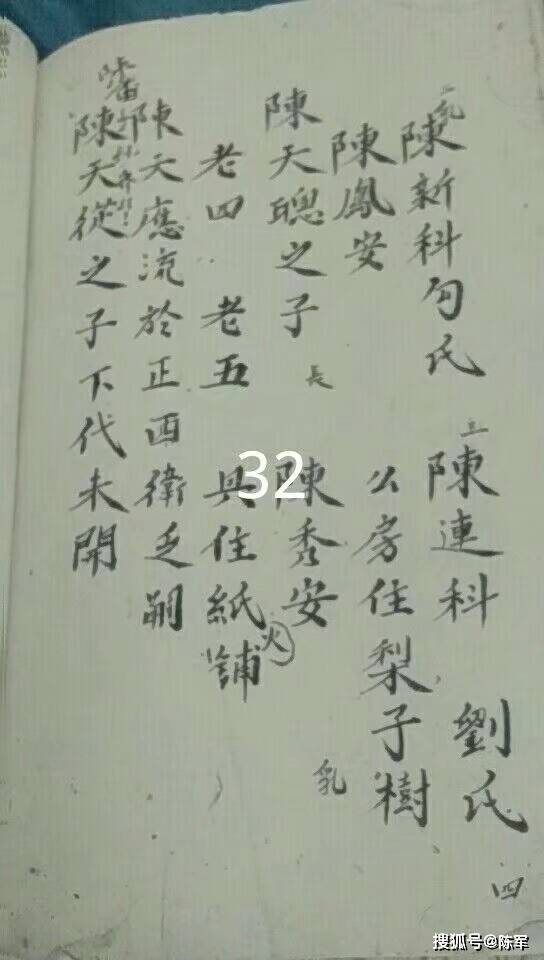 陳新科勾氏 陳連科 劉氏 四
陳鳳安 公房住梨子樹
陳天聰之子 長 陳秀安 乳
老四 老五 具住紙舖 火
陳天應流於正西衛乏嗣
陳天從之子下代未開
32
搜狐号@陈军